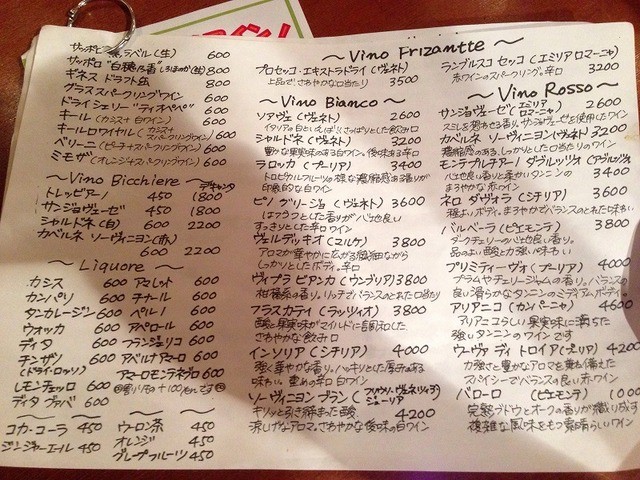 サッポロ 黒ラベル(生) 600
サッポロ "白穂乃香" しろほのか(生) 800
ギネス ドラフト缶 800
グラススパークリングワイン 600
ドライシェリー "ティオペペ" 600
キール(カシス+白ワイン) 600
キールロワイヤル(カシス+スパークリングワイン) 600
ベリーニ(ピーチ+スパークリングワイン) 600
ミモザ(オレンジ+スパークリングワイン) 600
~ Vino Bicchiere ~
デキャンタ
トレッビアーノ 450 1800
サンジョヴェーゼ 450 1800
シャルドネ(白) 600 2200
カベルネ ソーヴィニヨン(赤)
600 2200
~ Liquore ~
カシス 600
カンパリ 600
タンカレージン 600
ウォッカ 600
ディタ 600
チンザノ 600
(ドライ・ロッソ)
レモンチェッロ 600
ディタ グァバ 600
アマレット 600
チナール 600
ペルノ 600
アペロール 600
フランジェリコ 600
アベルナ アマーロ 600
アマーロモンテネグロ 600
コカ・コーラ 450
ジンジャーエール 450
ウーロン茶 450
オレンジ 450
グレープフルーツ 450
~ Vino Frizantte ~
プロセッコ・エキストラドライ(ヴェネト)
上品で、さわやかな口当り 3500
ランブルスコ セッコ(エミリアロマーニャ)
赤ワインのスパークリング。辛口 3200
~ Vino Bianco ~
ソアヴェ(ヴェネト) 2600
シャルドネ(ヴェネト) 3200
豊かな果実味のある白ワイン。後味ある辛口
ラロッカ(プーリア) 3400
印象的な白ワイン
ピノ グリージョ(ヴェネト) 3600
はつらつとした香りが心地良い
すっきりとした辛口ワイン
ヴェルディッキオ(マルケ) 3800
アロマが華やかに広がる風味ながら
しっかりとしたボディ。辛口
ヴィプラ ビアンカ(ウンブリア) 3800
柑橘系の香り。リッチでバランスのとれた口当り
フラスカティ(ラッツィオ) 3800
酸と果実味がマイルドに調和した
さわやかな辛口
インソリア(シチリア) 4000
強く華やかな香り。ハッキリとした厚みある
味わい 重めの辛口白ワイン
ソーヴィニヨン ブラン(フリウリ・ヴェネツィア・ジューリア)
キリッと引き締まった酸 4200
涼しげなアロマ。さわやかな後味の白ワイン
~ Vino Rosso ~
サンジョヴェーゼ(エミリアロマーニャ) 2600
スミレを思わせる香り。サンジョヴェーゼを使用したワイン
カベルネ ソーヴィニヨン(ヴェネト) 3200
濃縮感のある、しっかりとした口当たりのワイン
モンテプルチアーノ ダブルッツオ(アブルッツオ)
心地良い香りと柔かいタンニンの 3400
まろやかな赤ワイン
ネロ ダヴォラ(シチリア) 3600
程よいボディ。まろやかでバランスのとれた味わい
バルベーラ(ピエモンテ) 3800
ダークチェリーの心地良い香り。
品のよい酸と力強い味わい
プリミティーヴォ(プーリア) 4000
プラムやチェリージャムの香り。バランスの
良い滑らかなタンニンのミディアムボディ。
アリアニコ(カンパーニャ) 4600
アリアニコらしい果実味に満ちた
強いタンニンのワインです
ウーヴァ ディ トロイア(プーリア) 4200
力強さと豊かなアロマを兼ね備えた
スパイシーでバランスの良い赤ワイン
バローロ (ピエモンテ)
完熟ブドウとオークの香りが織り成す
複雑な風味をもつ素晴らしいワイン